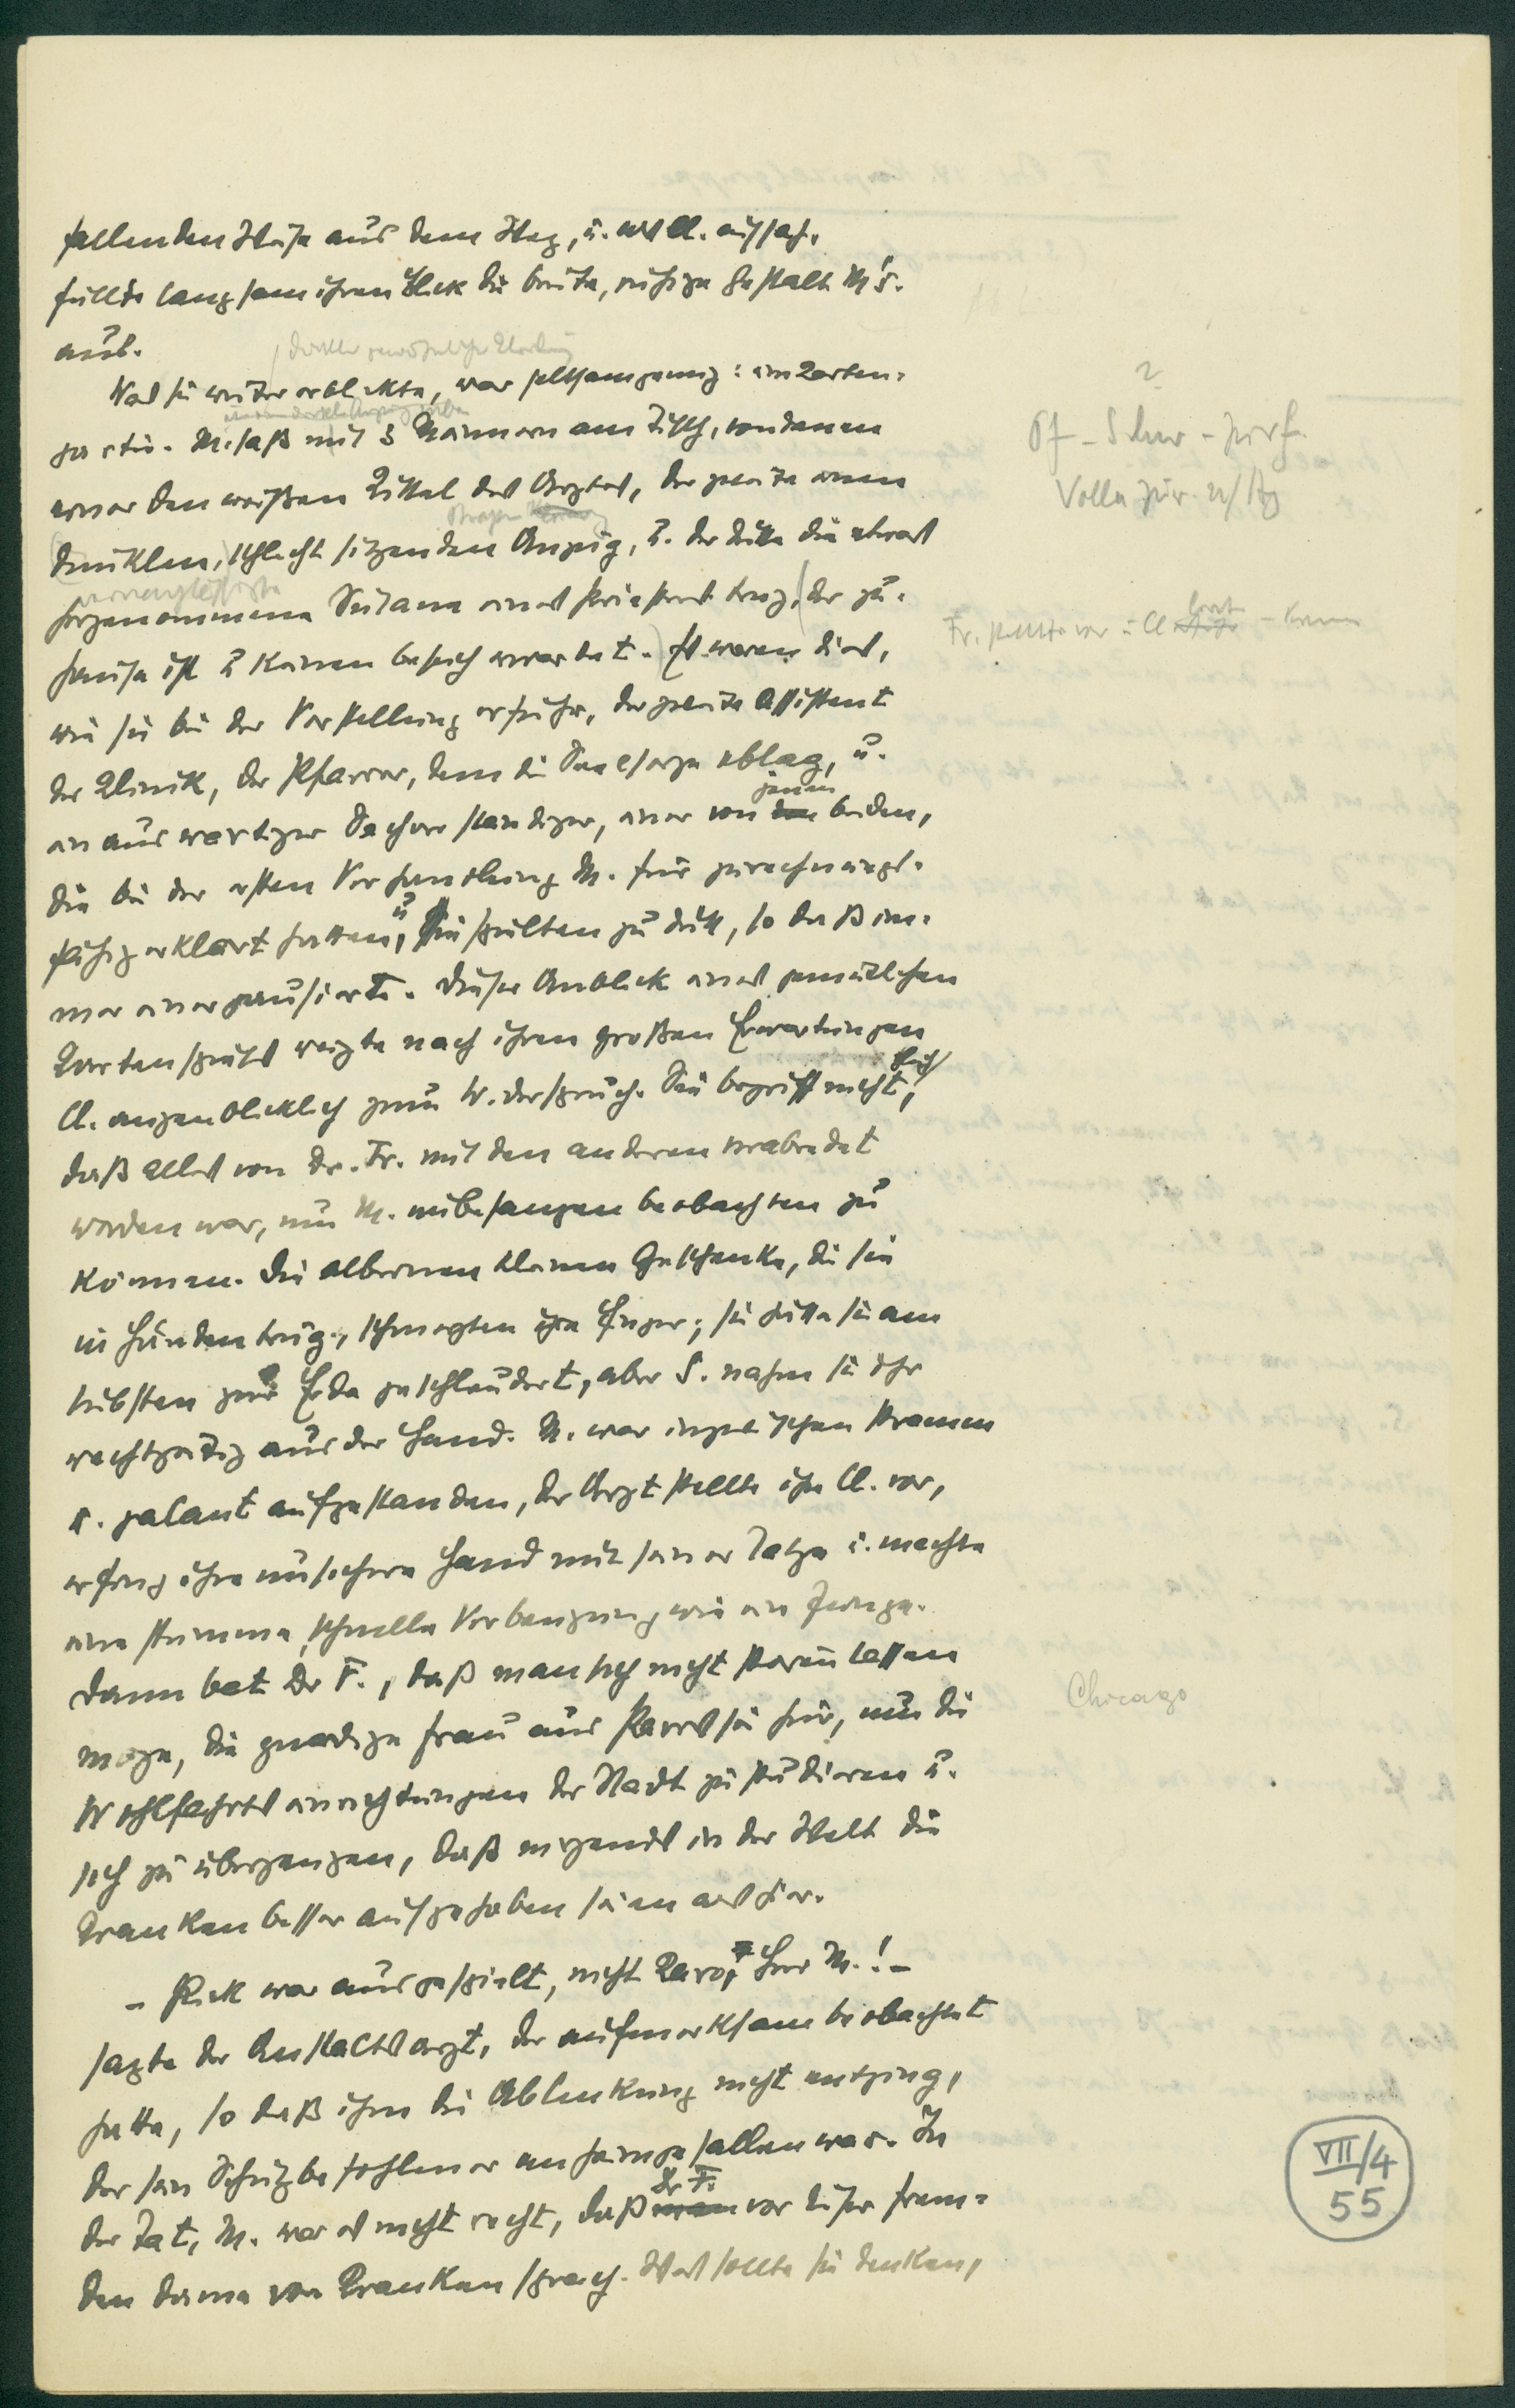 fallenden Stufe aus dem Weg, u. als Cl. aufsah,
füllte langsam ihren Blick die breite, ruhige Gestalt M's.
aus.
Was sie weiter erblickte, war seltsam genug: eine Karten-
partie. M. saß mit 3 Männern am Tisch, von denen
einer den weißen Kittel des Arztes, der zweite einen
dunklen, schlecht sitzenden Anzug, u. der dritte die etwas
hergenommene Sutane eines Priesters trug, der zu-
hause ist u keinen Besuch erwartet. Es waren dies,
wie sie bei der Vorstellung erfuhr, der zweite Assistent
der Klinik, der Pfarrer, dem die Seelsorge oblag, u.
ein auswärtiger Sachverständiger, einer von jenen beiden,
die bei der ersten Verhandlung M. für zurechnungs-
fähig erklärt hatten, u sie spielten zu dritt, so daß im-
mer einer pausierte. Dieser Anblick eines gemütlichen
Kartenspiels reizte nach ihren großen Erwartungen
Cl. augenblicklich zum Widerspruch. Sie begriff nicht gleich,
daß alles von Dr. Fr. mit den anderen verabredet
worden war, um M. unbefangen beobachten zu
können. Die albernen kleinen Geschenke, die sie
in Händen trug, schmerzten ihre Finger; sie hätte sie am
liebsten zur Erde geschleudert, aber S. nahm sie ihr
rechtzeitig aus der Hand. M. war inzwischen stramm
u. galant aufgestanden, der Arzt stellte ihm Cl. vor,
er fing ihre unsichere Hand mit seiner Tatze u. machte
eine stumme, schnelle Verbeugung wie ein Junge.
Dann bat Dr F., daß man sich nicht stören lassen
möge, die gnädige Frau aus sei hier, um die
Wohlfahrtseinrichtungen der Stadt zu studieren u.
sich zu überzeugen, daß nirgends in der Welt die
Kranken besser aufgehoben seien als hier.
– Pick war ausgespielt, nicht Karo, Herr M.! –
sagte der Anstaltsarzt, der aufmerksam beobachtet
hatte, so daß ihm die Ablenkung nicht entging,
der sein Schutzbefohlener anheimgefallen war. In
der Tat, M. war es nicht recht, daß Dr F. vor dieser frem-
den Dame von Kranken sprach. Was sollte sie denken,
?
Chicago
VII/4
55